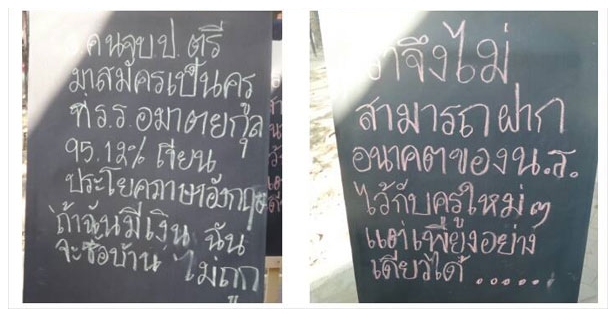 คนจบ ป. ตรี
มาสมัครเป็นครู
ที่ ร.ร. อมาตยกุล
95.12% เขียน
ประโยคภาษาอังกฤษ
ถ้าฉันมีเงิน ฉัน
จะซื้อบ้าน ไม่ถูก
เราจึงไม่
สามารถฝาก
อนาคตของ น.ร.
ไว้กับครูใหม่ ๆ
แต่เพียงอย่าง
เดียวได้ .....